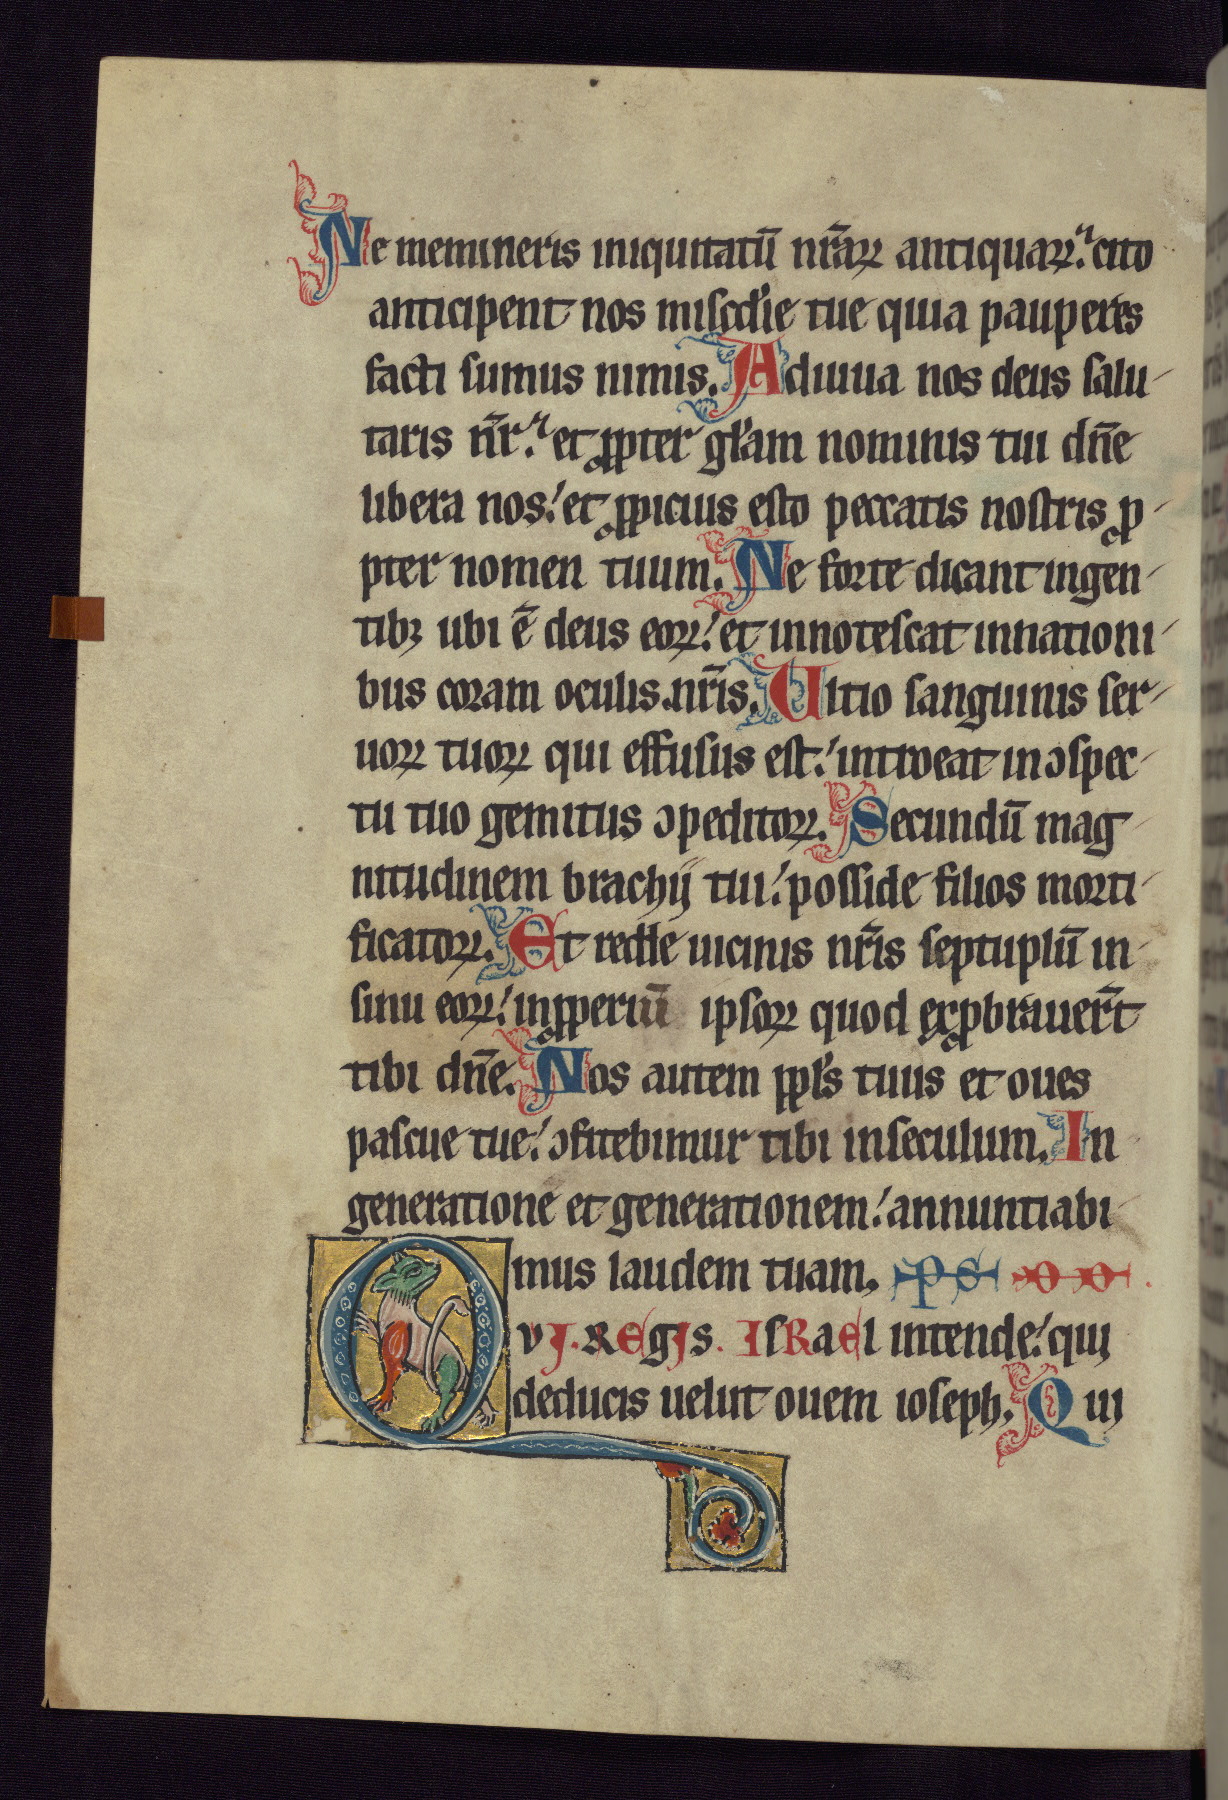 Ne memineris iniquitatū nr̄aꝝ antiquaꝝ. cito
anticipent nos misc̄die tue quia pauperes
facti sumus nimis. Adiuua nos deus salu-
taris nr̄. et ꝓpter gl̄am nominis tui dn̄e
libera nos: et ꝓpicius esto peccatis nostris ꝓ-
pter nomen tuum. Ne forte dicant in gen-
tibꝫ ubi ē deus eoꝝ: et innotescat in nationi-
bus coram oculis nr̄is. Ultio sanguinis ser-
uoꝝ tuoꝝ qui effusus est: introeat in ↄspec-
tu tuo gemitus ↄpeditoꝝ. Secundū mag-
nitudinem brachij tui: posside filios morti-
ficatoꝝ. Et redde uicinis nr̄is septuplū in-
sinu eoꝝ: inꝓperiū ipsoꝝ quod exꝓbrauer̄t
tibi dn̄e. Nos autem ppl̄s tuus et oues
pascue tue: ↄfitebimur tibi in seculum. In
generatione et generationem: annuntiabi-
mus laudem tuam. PS
QVJ. REGJS. ISRAEL intende: qui
deducis uelut ouem ioseph. Qui